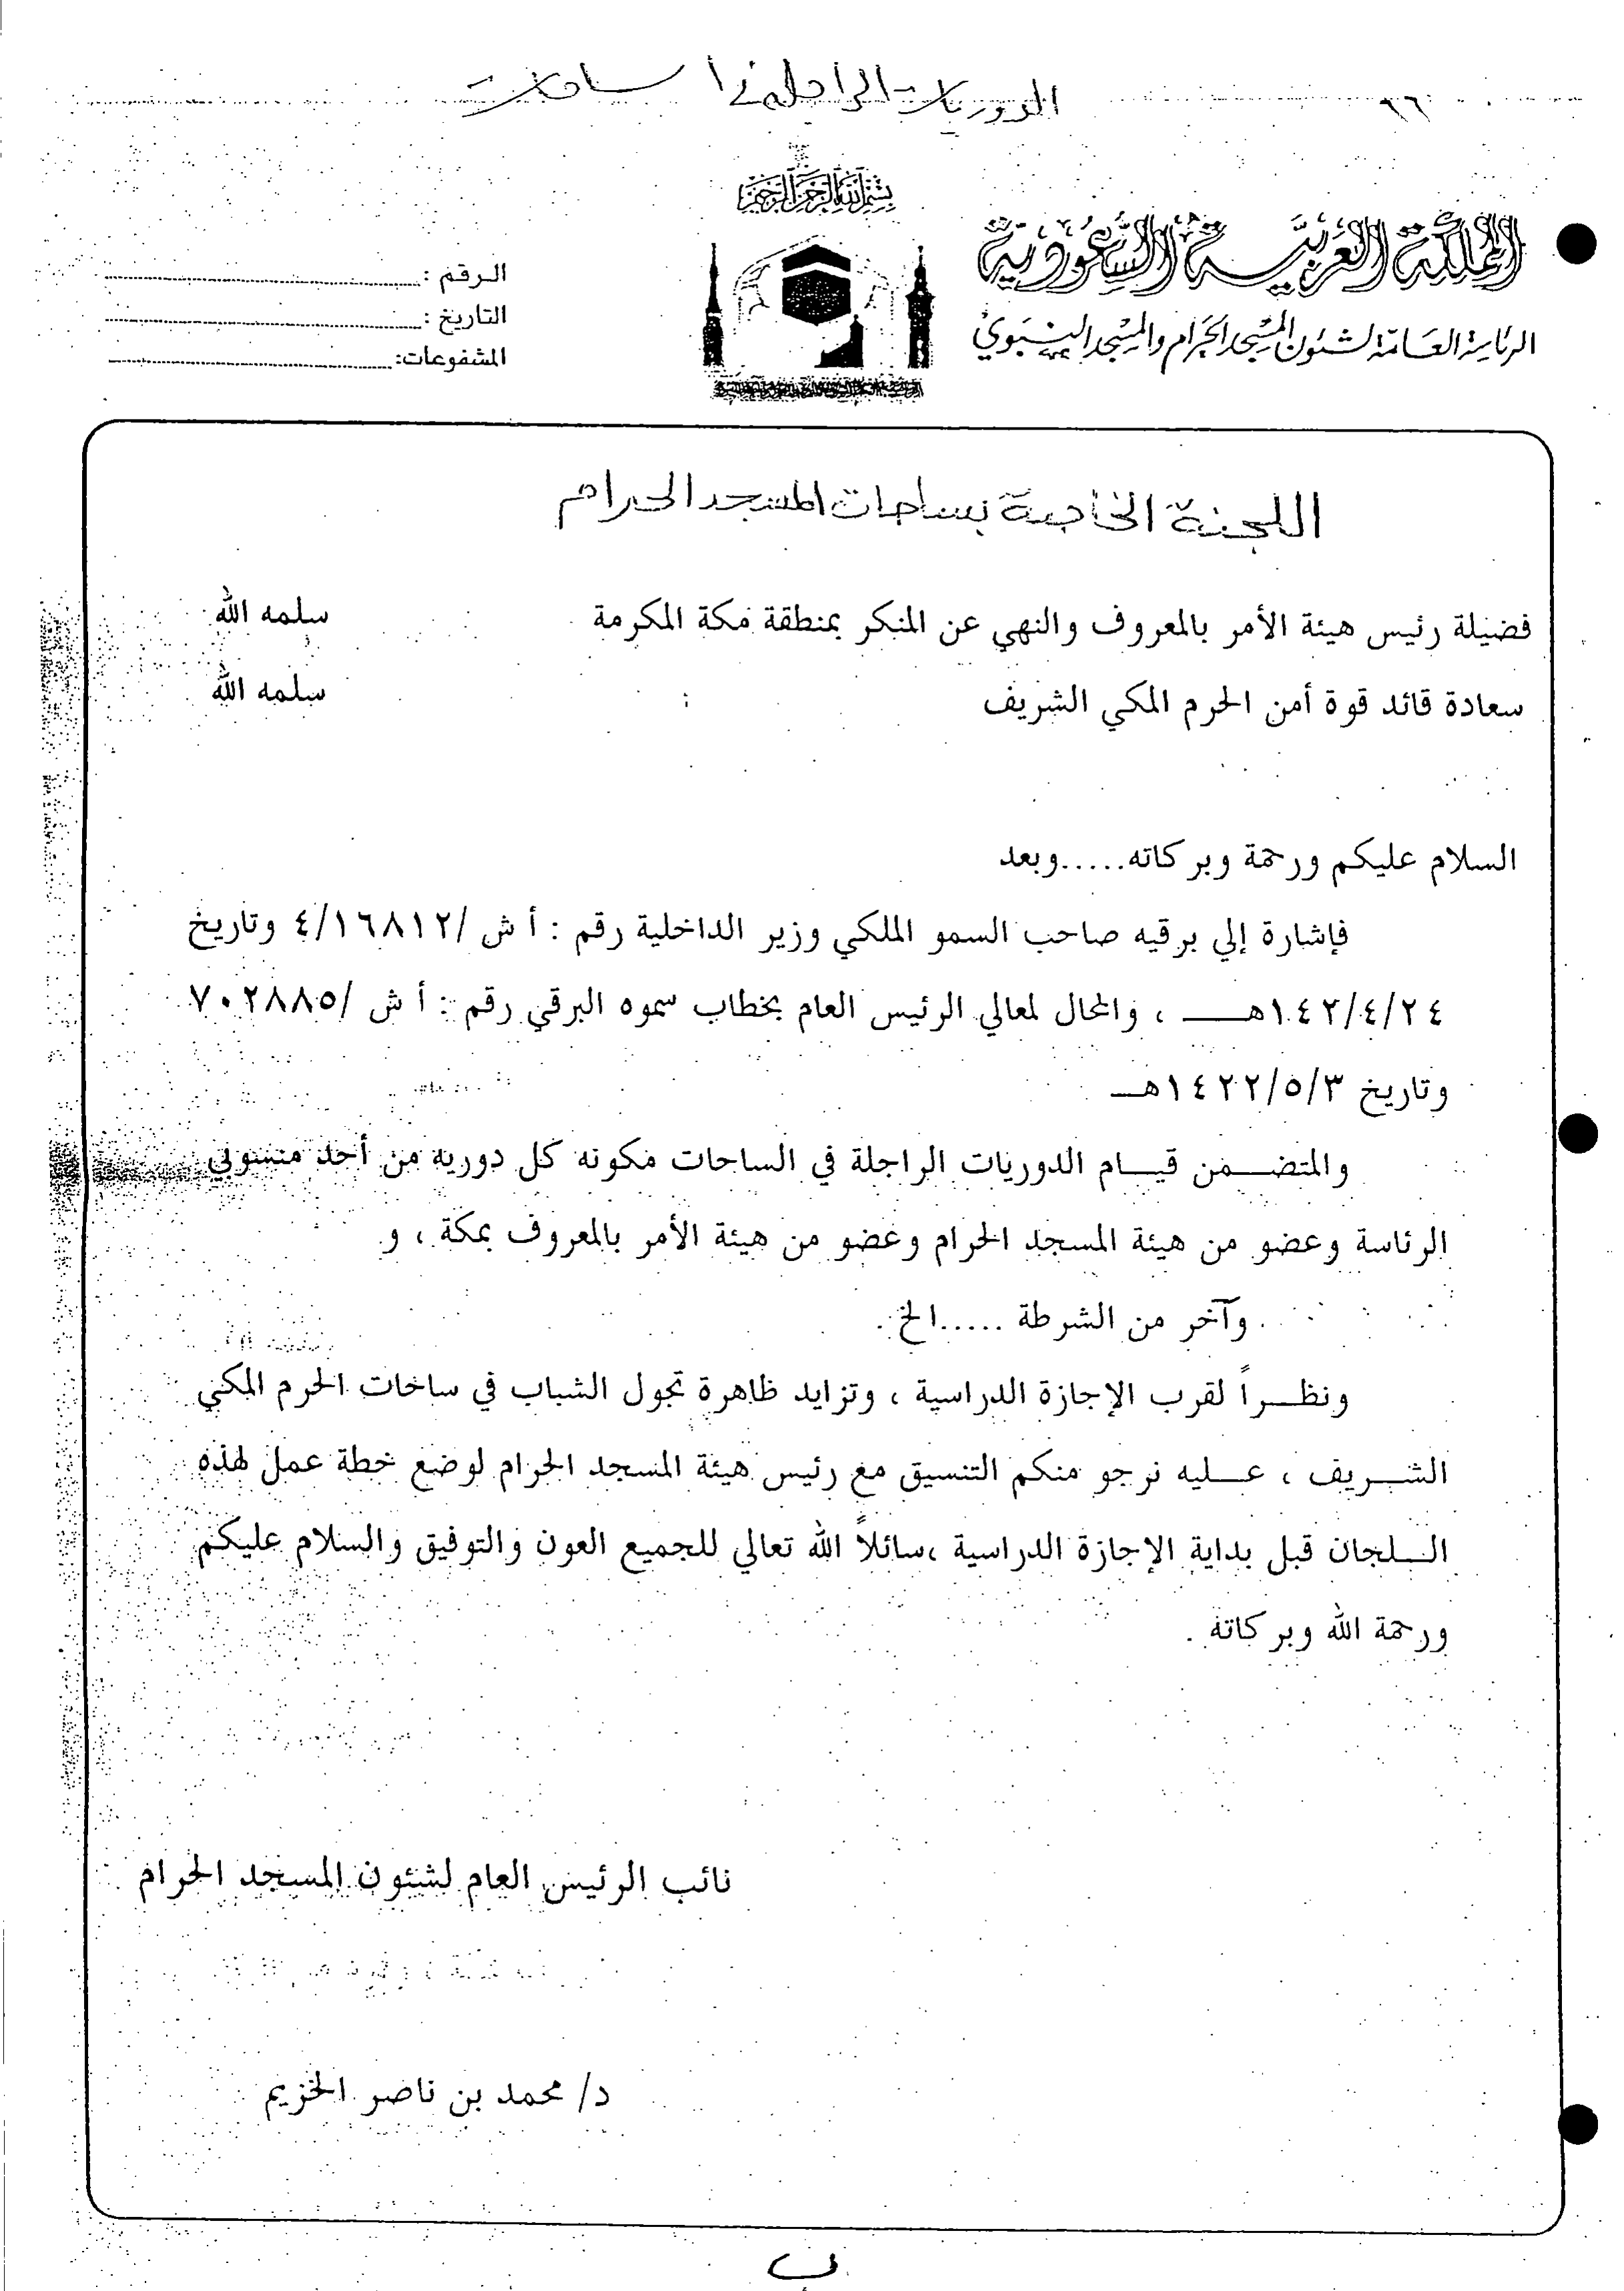 الدوريات الراجلة في ساحات
٩٦
بسم الله الرحمن الرحيم
المملكة العربية السعودية
الرئاسة العامة لشئون المسجد الحرام والمسجد النبوي
الرقم :
التاريخ :
المشفوعات:
اللجنة الخاصة بساحات المسجد الحرام
فضيلة رئيس هيئة الأمر بالمعروف والنهي عن المنكر بمنطقة مكة المكرمة سلمه الله
سعادة قائد قوة أمن الحرم المكي الشريف سلمه الله
السلام عليكم ورحمة وبركاته.....وبعد
فإشارة إلي برقيه صاحب السمو الملكي وزير الداخلية رقم : أ ش /٤/١٦٨١٢ وتاريخ
١٤٢/٤/٢٤هـ ، والمحال لمعالي الرئيس العام بخطاب سموه البرقي رقم : أ ش /٧٠٢٨٨٥
وتاريخ ١٤٢٢/٥/٣هـ
والمتضمن قيام الدوريات الراجلة في الساحات مكونه كل دوريه من أحد منسوبي
الرئاسة وعضو من هيئة المسجد الحرام وعضو من هيئة الأمر بالمعروف بمكة ، و
وآخر من الشرطة .....الخ .
ونظراً لقرب الإجازة الدراسية ، وتزايد ظاهرة تجول الشباب في ساحات الحرم المكي
الشريف ، عليه نرجو منكم التنسيق مع رئيس هيئة المسجد الحرام لوضع خطة عمل لهذه
اللجان قبل بداية الإجازة الدراسية ،سائلاً الله تعالي للجميع العون والتوفيق والسلام عليكم
ورحمة الله وبركاته .
نائب الرئيس العام لشئون المسجد الحرام
د/ محمد بن ناصر الخزيم
ب